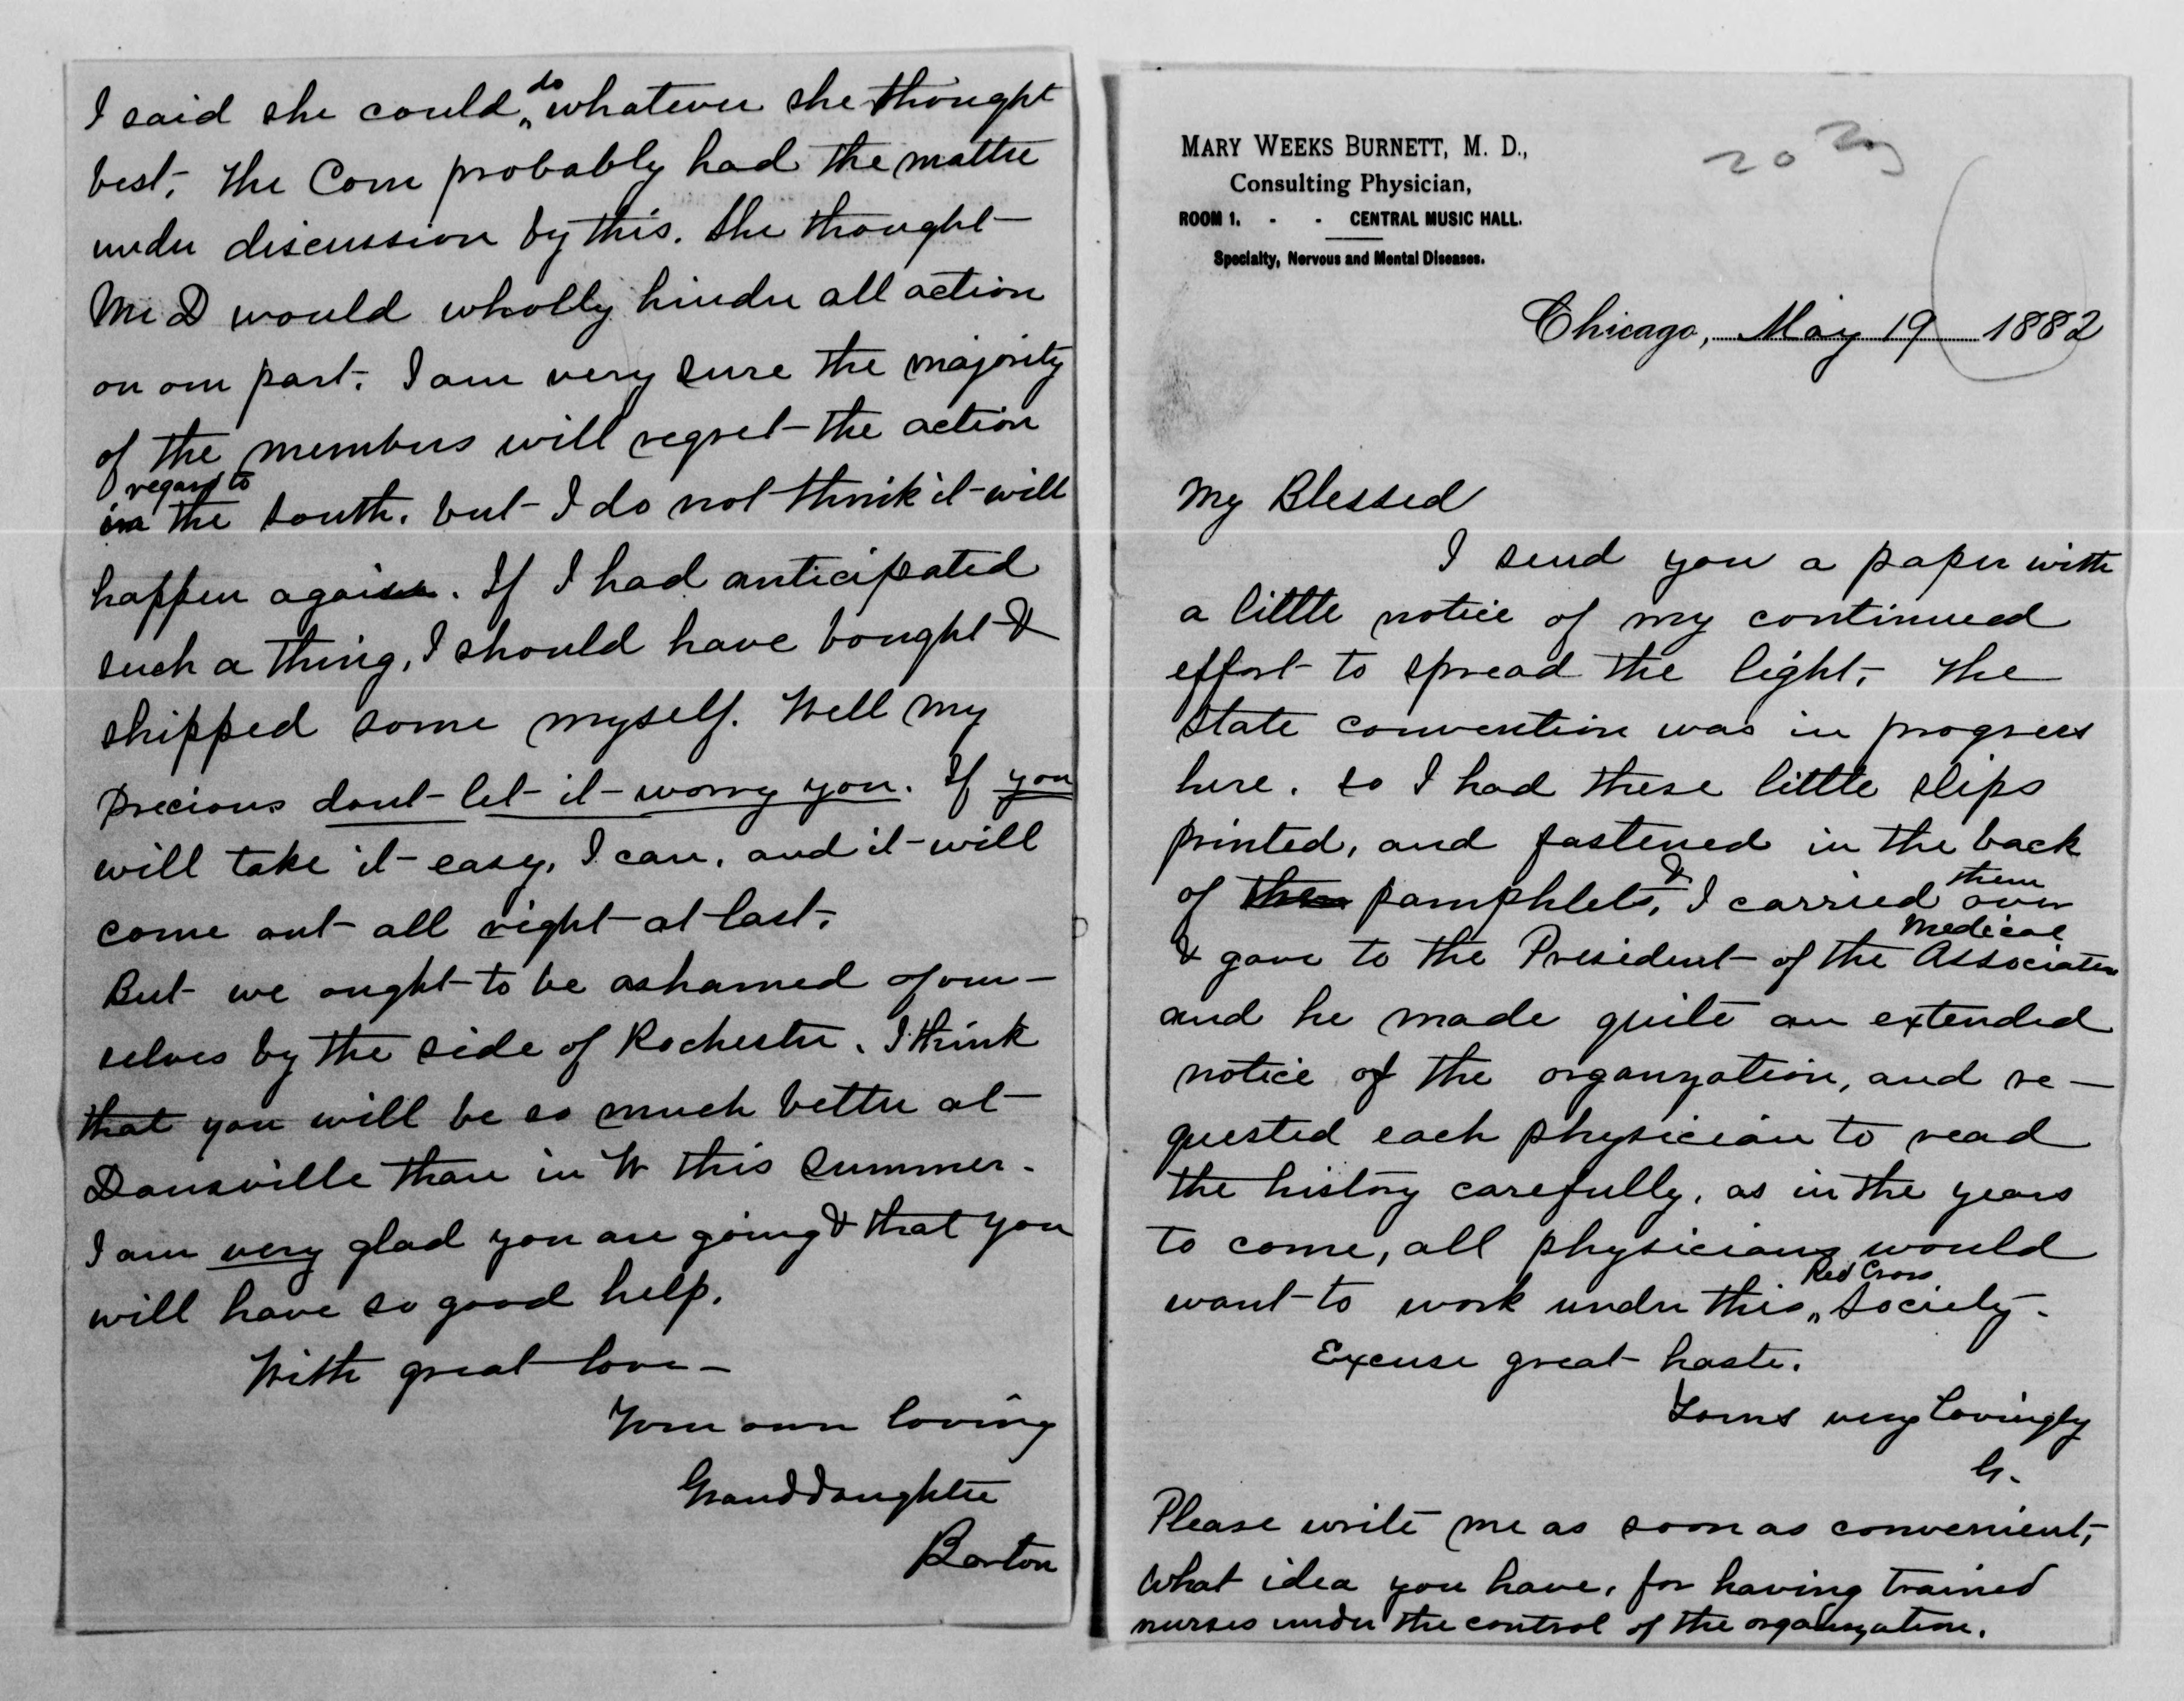 I said she could do whatever she thought
best. The Com probably had the matter
under discussion by this. She thought
Mr D would wholly hinder all action
on our part. I am very sure the majority
of the members will regret the action
in regard to the south. but I do not think it will
happen again. If I had anticipated
such a thing, I should have bought &
shipped some myself. Well my
precious dont let it worry you. If you
will take it easy, I can, and it will
come out all right at last.
But we ought to be ashamed of our-
selves by the side of Rochester. I think
that you will be so much better at
Dansville than in W this summer.
I am very glad you are going & that you
will have so good help.
With great love-
Your own loving
Granddaughter
Barton
MARY WEEKS BURNETT, M. D.,
Consulting Physician,
ROOM 1. - - CENTRAL MUSIC HALL.
Specialty, Nervous and Mental Diseases.
Chicago, May 19 1882
My Blessed
I send you a paper with
a little notice of my continued
effort to spread the light. The
State convention was in progress
here. so I had these little slips
printed, and fastened in the back
of pamphlets, & I carried them over
& gave to the President of the Medical Association
and he made quite an extended
notice of the organzation, and re-
quested each physician to read
the history carefully, as in the years
to come, all physicians would
want to work under this Red Cross Society.
Excuse great haste.
Yours very lovingly
G.
Please write me as soon as convenient,
what idea you have, for having trained
nurses under the control of the organzation.